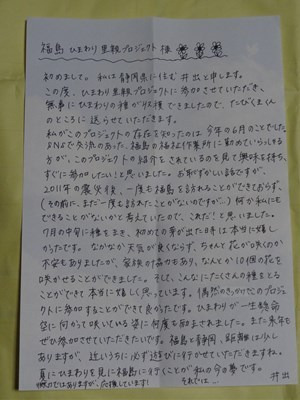 福島 ひまわり里親プロジェクト 様
初めまして。私は静岡県に住む 井出と申します。
この度、ひまわり里親プロジェクトに参加させていただき、
無事にひまわりの種が収穫できましたので、たびくまくん
のところに 送らせていただきます。
私がこのプロジェクトの存在を知ったのは 今年の6月のことでした。
SNSで交流のあった、福島の福祉作業所に勤めていらっしゃる
方が、このプロジェクトの紹介をされているのを見て興味を持ち、
すぐに参加したい！と思いました。お恥ずかしい話ですが、
2011年の震災後、一度も福島を訪れることができておらず、
(その前に、まだ一度も訪れたことがないのですが…) 何か私にも
できることがないかと考えていたので、これだ！と思いました。
7月の中旬に種をまき、初めての芽が出た日は本当に嬉し
かったです。なかなか天気が良くならず、ちゃんと花が咲くのか
不安もありましたが、家族の協力もあり、なんと101個の花を
咲かせることができました。そして、こんなにたくさんの種をと
ることができて 本当に嬉しく思っています。偶然のきっかけでこのプロジェ
クトに参加することができて良かったです。ひまわりが一生懸命
空に向かって咲いている姿に何度も励まされました。また来年も
ぜひ参加させていただきたいです。福島と静岡、距離は少し
ありますが、近いうちに必ず遊びに行かせていただきますね。
夏にひまわりを見に福島に行くことが私の今の夢です。
ではありますが、応援しています！ それでは… 井出